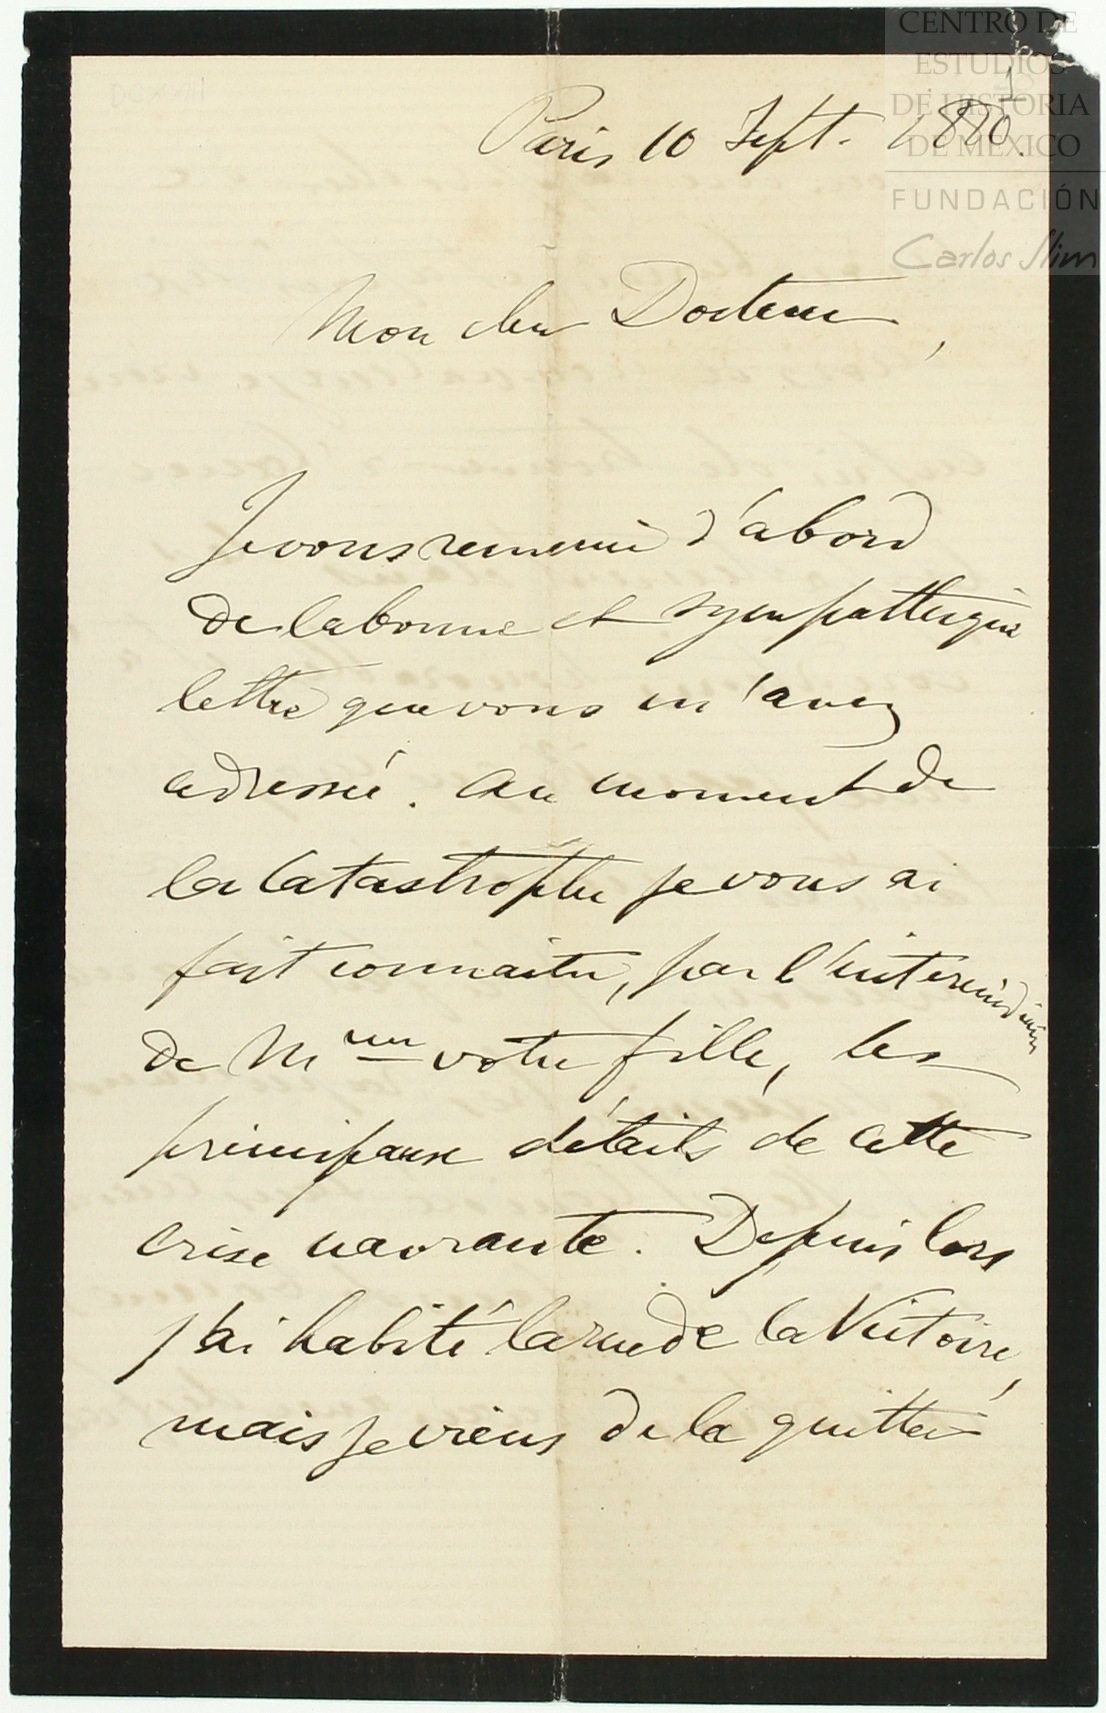 CENTRO DE
ESTUDIOS
DE HISTORIA
DE MÉXICO
FUNDACIÓN
Carlos Slim
1
Paris 10 Sept. 1880.
Mon cher Docteur,
Je vous remercie d'abord
de la bonne et sympathique
lettre que vous m'avez
adressée. Au moment de
la catastrophe je vous ai
fait connaitre, par l'intermédiaire
de Mme votre fille, les
principaux détails de cette
crise navrante. Depuis lors
j'ai habité la rue de la Victoire,
mais je viens de la quitter